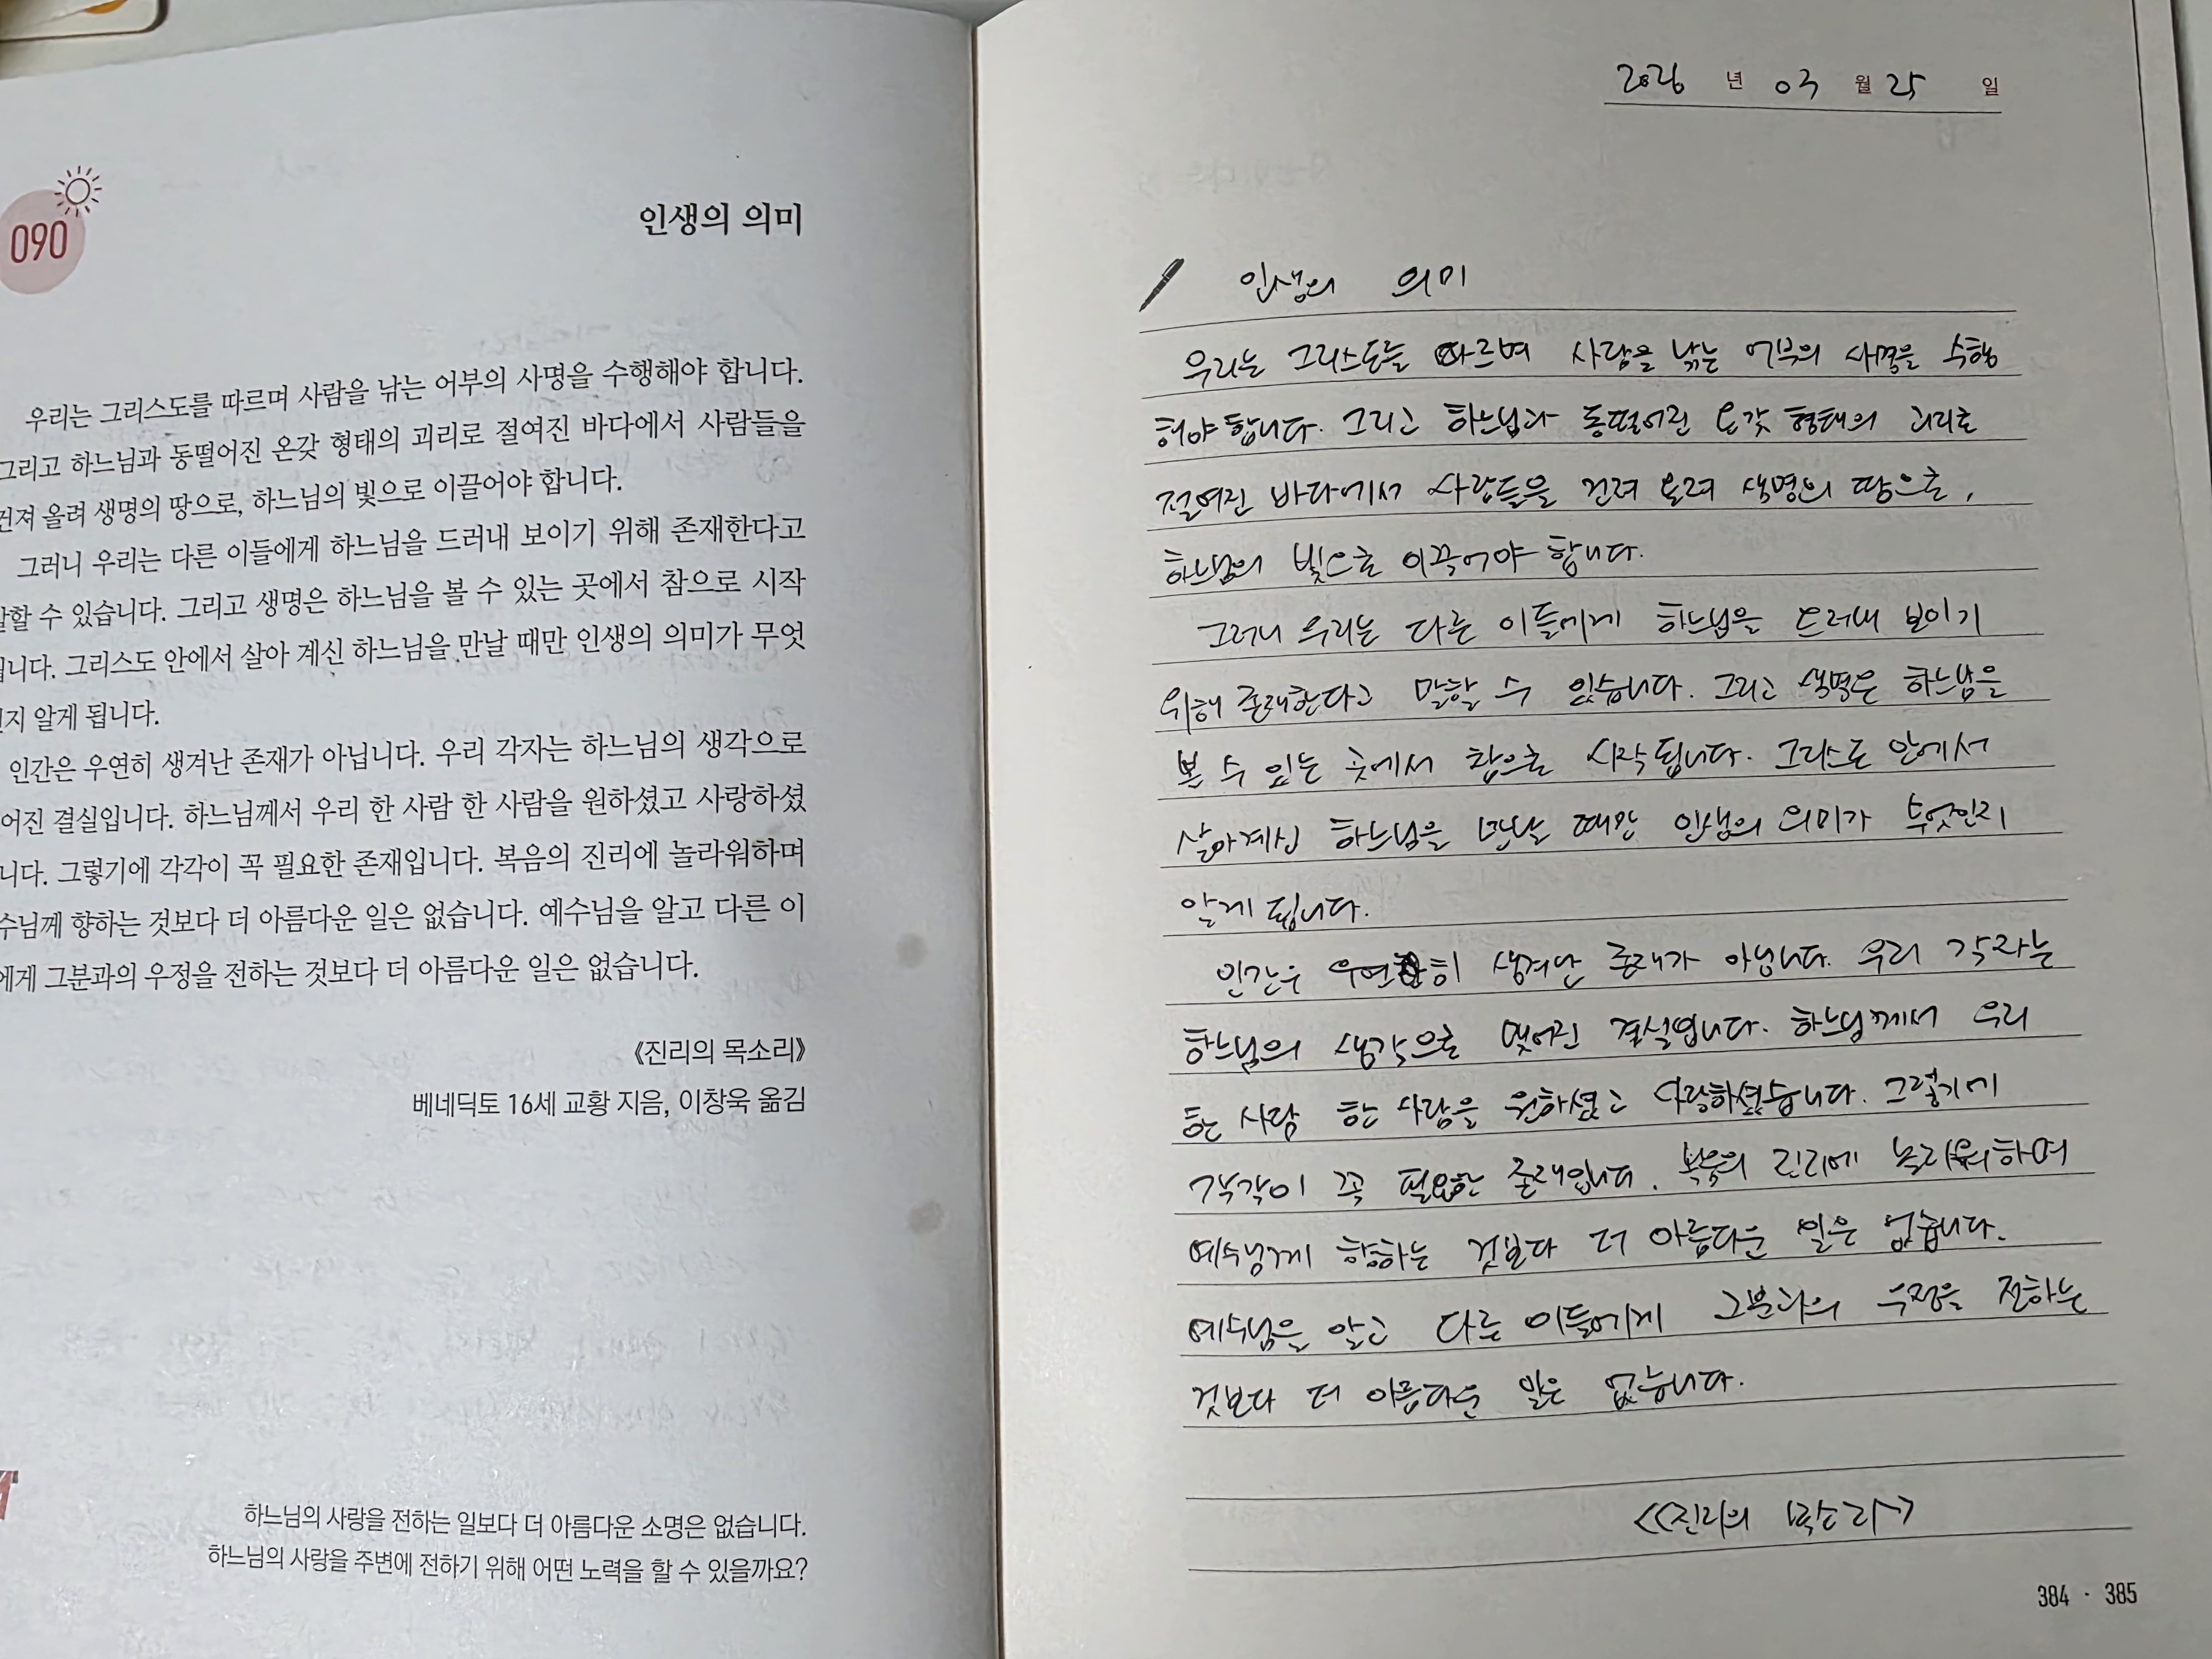 090
인생의 의미
우리는 그리스도를 따르며 사람을 낚는 어부의 사명을 수행해야 합니다.
그리고 하느님과 동떨어진 온갖 형태의 괴리로 절여진 바다에서 사람들을
건져 올려 생명의 땅으로, 하느님의 빛으로 이끌어야 합니다.
그러니 우리는 다른 이들에게 하느님을 드러내 보이기 위해 존재한다고
말할 수 있습니다. 그리고 생명은 하느님을 볼 수 있는 곳에서 참으로 시작
됩니다. 그리스도 안에서 살아 계신 하느님을 만날 때만 인생의 의미가 무엇
인지 알게 됩니다.
인간은 우연히 생겨난 존재가 아닙니다. 우리 각자는 하느님의 생각으로
어진 결실입니다. 하느님께서 우리 한 사람 한 사람을 원하셨고 사랑하셨
니다. 그렇기에 각각이 꼭 필요한 존재입니다. 복음의 진리에 놀라워하며
수님께 향하는 것보다 더 아름다운 일은 없습니다. 예수님을 알고 다른 이
에게 그분과의 우정을 전하는 것보다 더 아름다운 일은 없습니다.
《진리의 목소리》
베네딕토 16세 교황 지음, 이창욱 옮김
하느님의 사랑을 전하는 일보다 더 아름다운 소명은 없습니다.
하느님의 사랑을 주변에 전하기 위해 어떤 노력을 할 수 있을까요?
2026 년 03 월 25 일
인생의 의미
우리는 그리스도를 따르며 사람을 낚는 어부의 사명을 수행
해야 합니다. 그리고 하느님과 동떨어진 온갖 형태의 괴리로
절여진 바다에서 사람들을 건져 올려 생명의 땅으로,
하느님의 빛으로 이끌어야 합니다.
그러니 우리는 다른 이들에게 하느님을 드러내 보이기
위해 존재한다고 말할 수 있습니다. 그리고 생명은 하느님을
볼 수 있는 곳에서 참으로 시작됩니다. 그리스도 안에서
살아계신 하느님을 만날 때만 인생의 의미가 무엇인지
알게 됩니다.
인간은 우연히 생겨난 존재가 아닙니다. 우리 각자는
하느님의 생각으로 맺어진 결실입니다. 하느님께서 우리
한 사람 한 사람을 원하셨고 사랑하셨습니다. 그렇기에
각각이 꼭 필요한 존재입니다. 복음의 진리에 놀라워하며
예수님께 향하는 것보다 더 아름다운 일은 없습니다.
예수님을 알고 다른 이들에게 그분과의 우정을 전하는
것보다 더 아름다운 일은 없습니다.
<<진리의 목소리>>
384 · 385